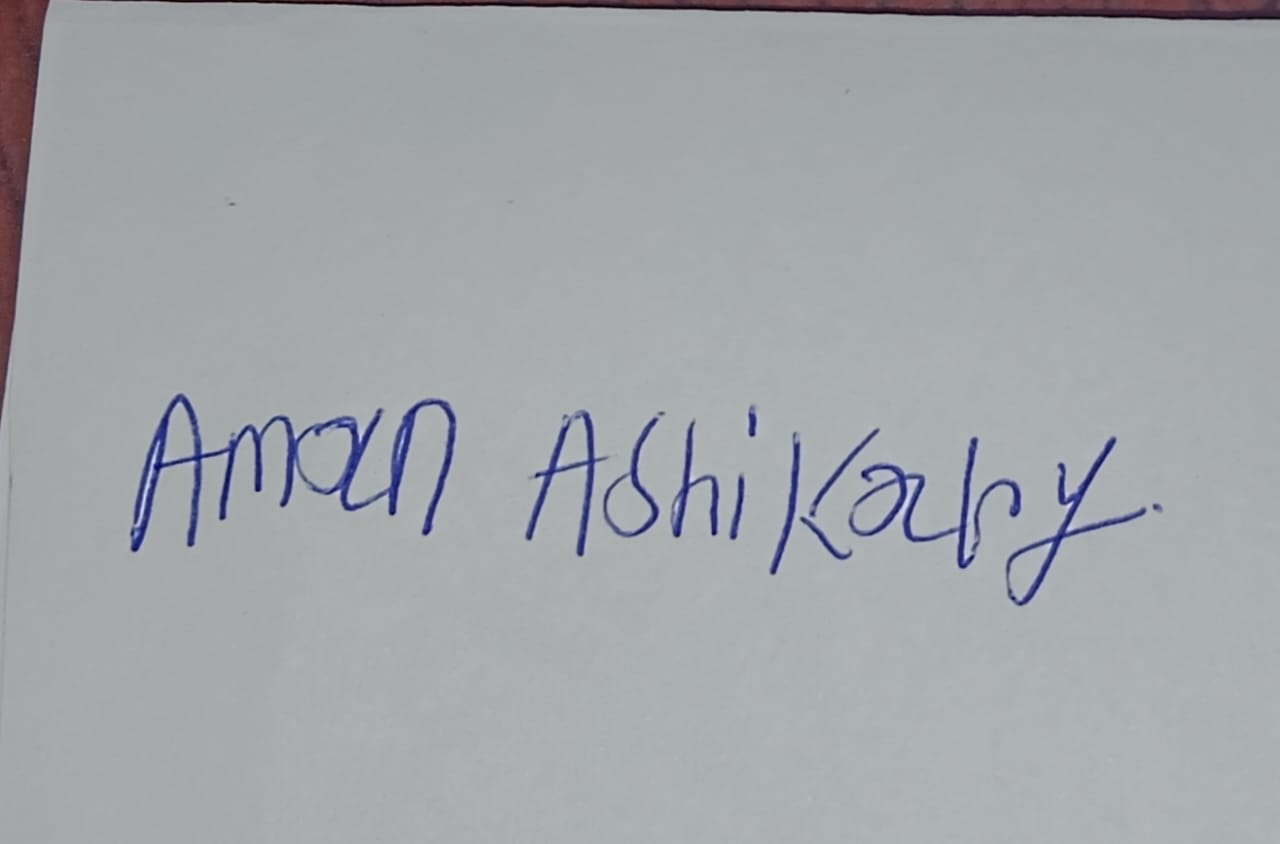 Aman Ashikary.